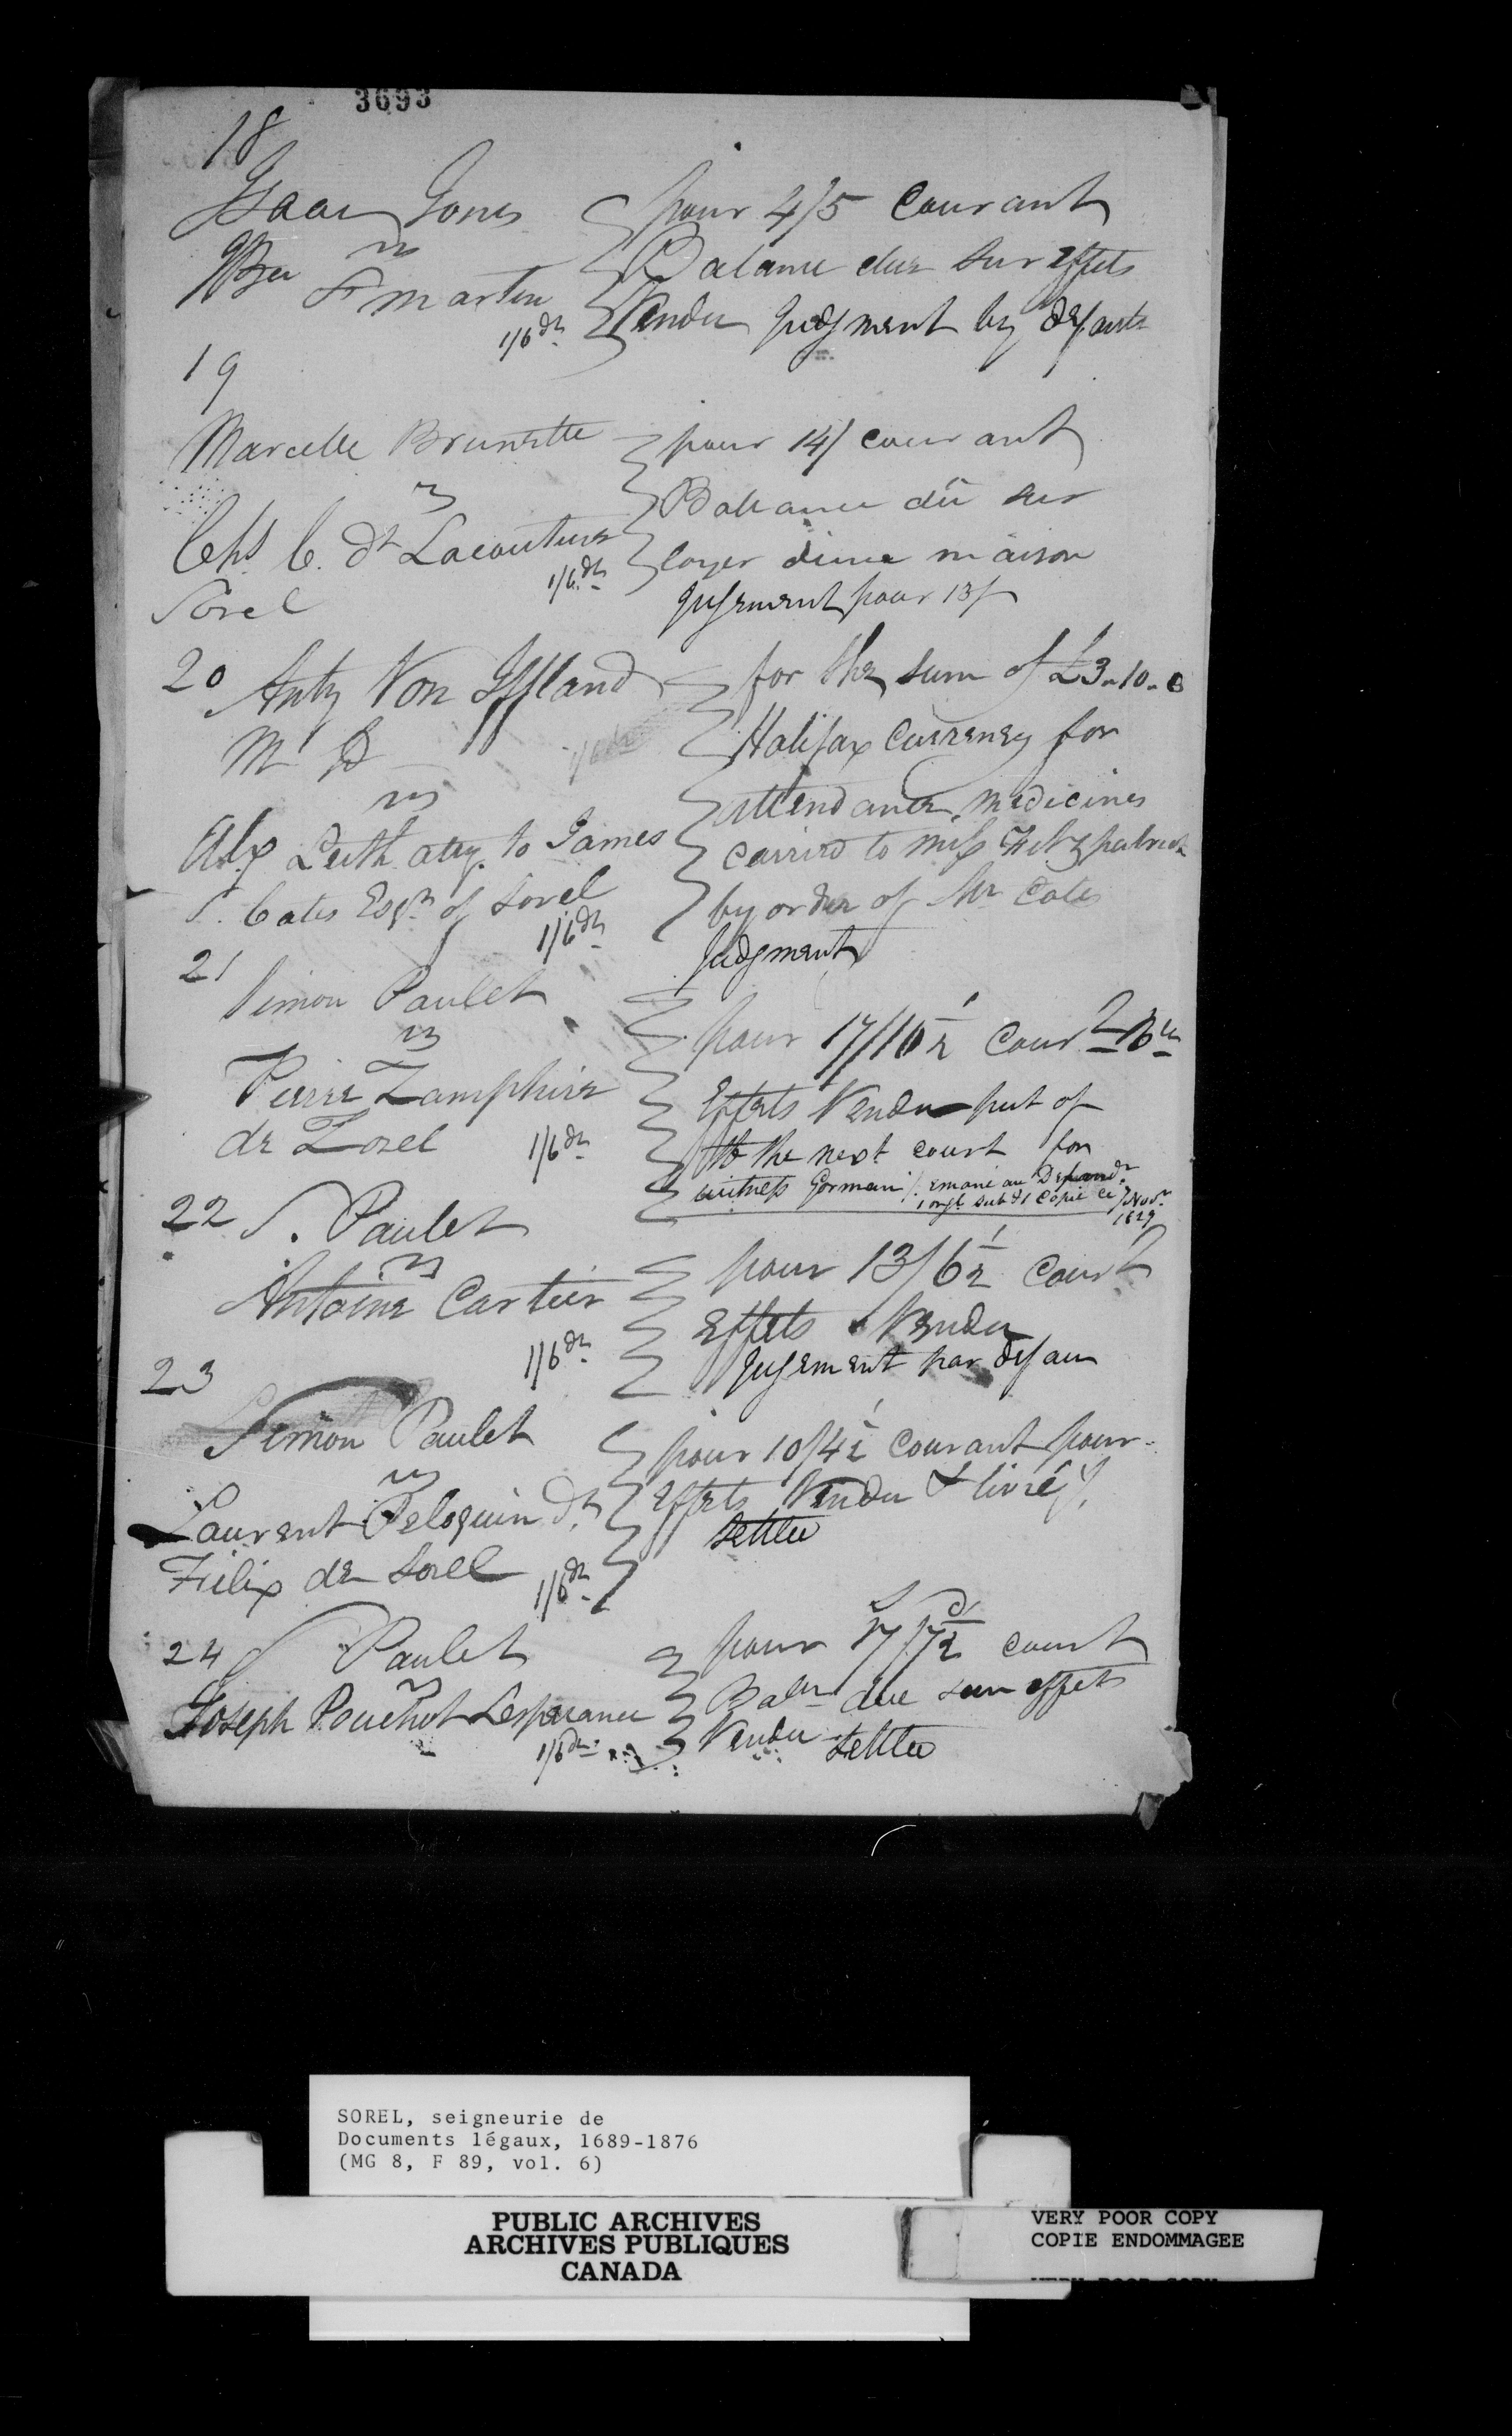 3693
18
Isaac Jones
vs
F Martin
1/6 dr
pour 4/5 Courant
Balance due sur Effets
Vendu Judgment by defaut
19
Marcelle Brunette
vs
Chs C. dt Lacouture
Sorel
1/6 dr
pour 14/ courant
Ballance dû sur
loyer dune maison
Jugement pour 13/
20 Anty Von Iffland
M D
vs
Alx Leith atty. to James
S. Cates Esqr of Sorel
1/6 dr
for the sum of £3-10-0
Halifax Currency for
attendance, medicines
to Miss Fitzpatrick
by order of Mr Cates
Judgment
21
Simon Paulet
vs
Pierre Lamphire
de Sorel
1/6 dr
pour 17/10½ Cour
Effets Vendu put of
to the next court for
witness Germain /. emané au Defendr
1 orgl sub & 1 Copie ce 7 Novr
1829
22 S. Paulet
vs
Antoine Cartier
1/6 dr
pour 13/6½ Court
Effets Vendu
Jugement par defau
23
Simon Paulet
vs
Laurent Peloquin dt
Felix de Sorel
1/6 dr
pour 10/4½ Courant pour
Effets Vendu & livré /.
settled
24 S Paulet
vs
Joseph Pouchot Lesperance
1/6 dr
pour 17/7½ court
Balce due sur effets
Vendu settled
SOREL, seigneurie de
Documents légaux, 1689-1876
(MG 8, F 89, vol. 6)
PUBLIC ARCHIVES
ARCHIVES PUBLIQUES
CANADA
VERY POOR COPY
COPIE ENDOMMAGEE
VERY POOR COPY